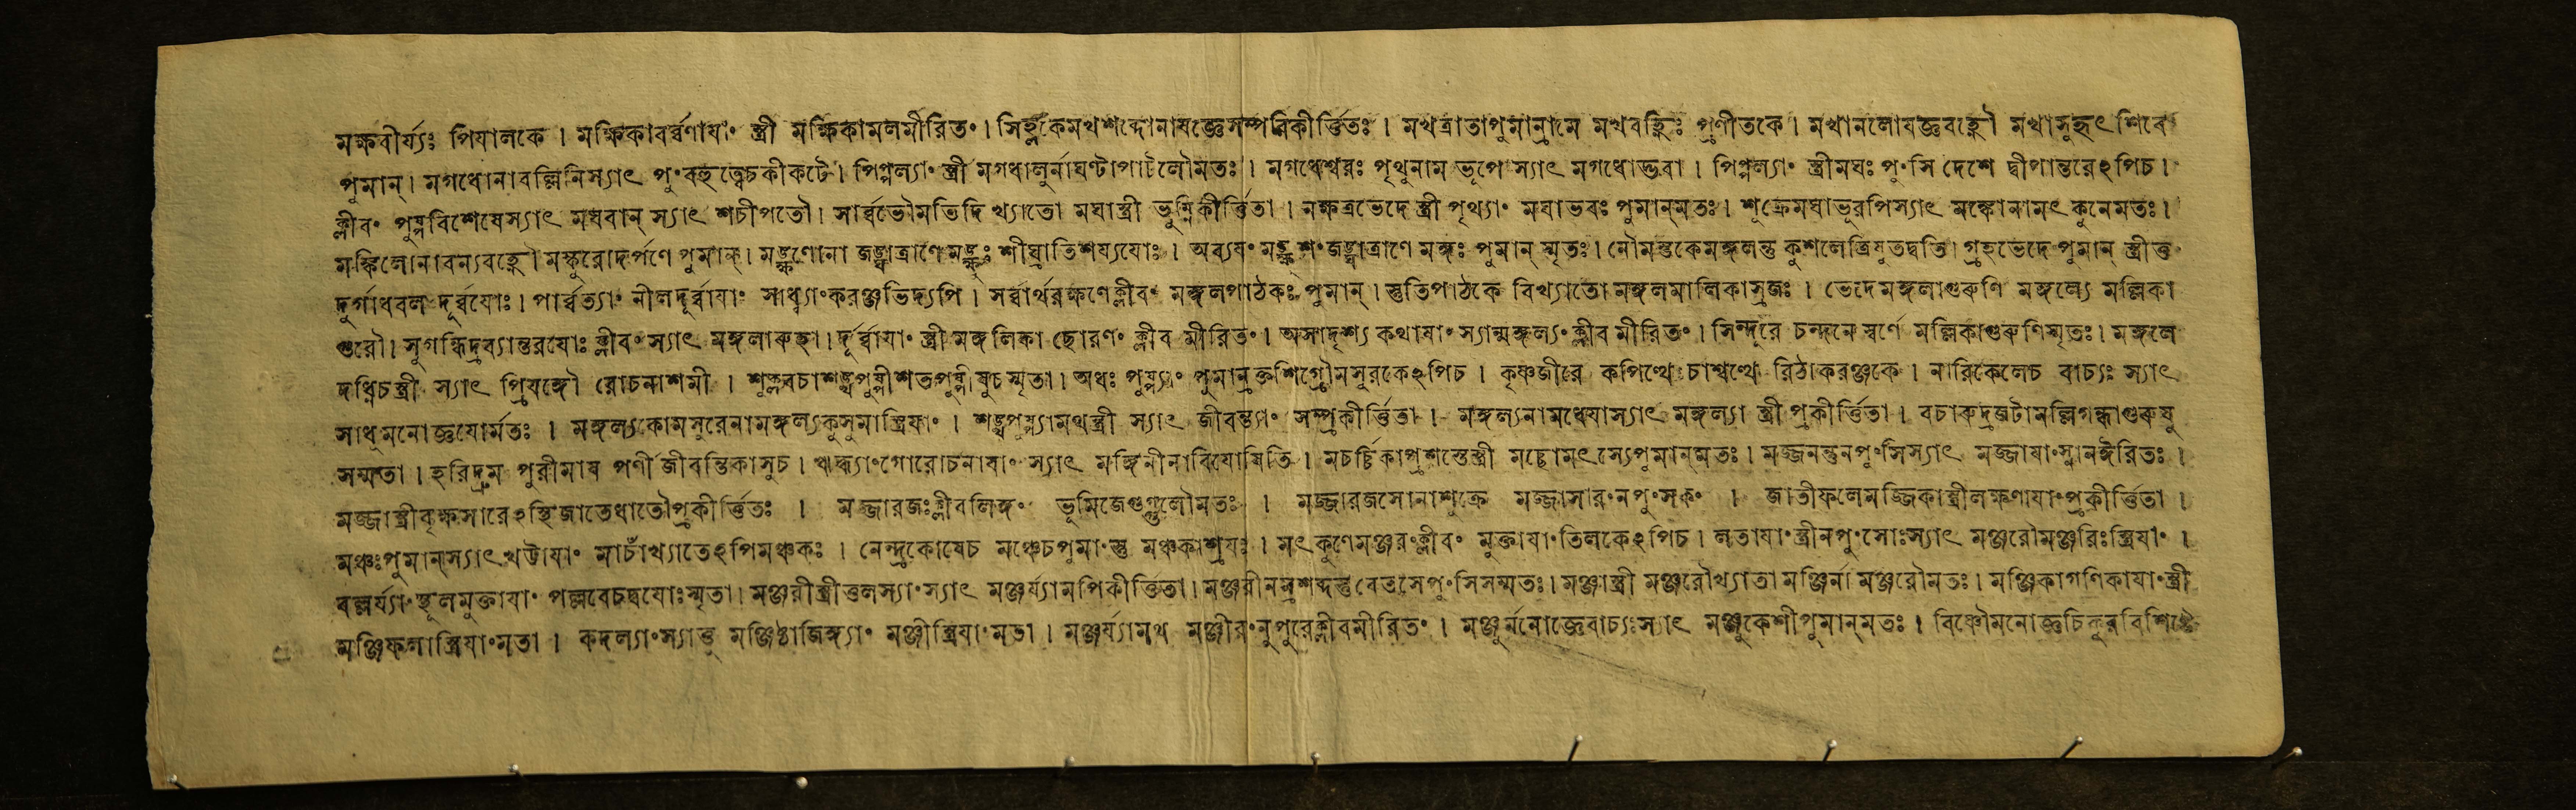 মক্ষবীর্য্যঃ পিযালকে । মক্ষিকাবর্ব্বণাযা॰ স্ত্রী মক্ষিকামলমীরিত॰ । সিহ্লকেমথশব্দোনাযজ্ঞেসম্পরিকীর্ত্তিতঃ । মখত্রাতাপুমান্রামে মখবহ্নিঃ প্রণীতকে । মখানলোযজ্ঞবহ্নৌ মখাসুহৃৎ শিবে
পুমান্ । মগধোনাবল্লিনিস্যাৎ পু॰বহুত্বেচকীকটে । পিপ্পল্যা॰ স্ত্রী মগধালুর্নাঘণ্টাপাটলৌমতঃ । মগধেশ্বরঃ পৃথুনাম ভূপে স্যাৎ মগধোদ্ভবা । পিপ্পল্যা॰ স্ত্রীমঘঃ পু॰সি দেশে দ্বীপান্তরেঽপিচ ।
ক্লীব॰ পুষ্পবিশেষেস্যাৎ মঘবান্ স্যাৎ শচীপতৌ । সার্ব্বভৌমভিদি খ্যাতো মঘাস্ত্রী ভূম্নিকীর্ত্তিতা । নক্ষত্রভেদে স্ত্রী পৃথ্যা॰ মঘাভবঃ পুমান্মতঃ । শুক্রেমঘাভূরপিস্যাৎ মঙ্কোনামৎ কুনেমতঃ ।
মঙ্কিলোনাবন্যবহ্নৌ মঙ্কুরোদর্পণে পুমান্ । মঙ্ক্ষণোনা জঙ্ঘাত্রাণে মঙ্ক্ষুঃ শীঘ্রাতিশয্যযোঃ । অব্যয॰ মঙ্ক্ষুশ॰জঙ্ঘাত্রাণে মঙ্গঃ পুমান্ স্মৃতঃ । নৌমস্তকেমঙ্গলন্তু কুশলেত্রিযুতদ্বতি । গ্রহভেদে পুমান্ স্ত্রীত্ত
দুর্গাধবল দূর্ব্বযোঃ । পার্ব্বত্যা॰ নীলদূর্ব্বাযা॰ সাধ্ব্যা॰করঞ্জভিদ্যপি । সর্ব্বার্থরক্ষণেক্লীব॰ মঙ্গলপাঠকঃ পুমান্ । স্তুতিপাঠকে বিখ্যাতো মঙ্গলমালিকাস্রজঃ । ভেদেমঙ্গলাগুরুণি মঙ্গল্যে মল্লিকা
গুরৌ । সুগন্ধিদ্রব্যান্তরযোঃ ক্লীব॰ স্যাৎ মঙ্গলারুহা । দূর্ব্বাযা॰ স্ত্রী মঙ্গলিকা ছোরণ॰ ক্লীব মীরিত॰ । অসাদৃশ্য কথাযা॰ স্যান্মঙ্গল্য॰ ক্লীব মীরিত॰ । সিন্দূরে চন্দনে স্বর্ণে মল্লিকাগুরুণিস্মৃতঃ । মঙ্গলে
দধ্নিচস্ত্রী স্যাৎ প্রিযঙ্গৌ রোচনাশমী । শুক্লবচাশঙ্খপুষ্পীশতপুষ্পীষুচ স্মৃতা । অধঃ পুষ্প্যা॰ পুমানুক্তশিগ্রৌমসূরকেঽপিচ । কৃষ্ণজীরে কপিত্থেচাশ্বত্থে রিঠাকরঞ্জকে । নারিকেলেচ বাচ্যঃ স্যাৎ
সাধুমনোজ্ঞযোর্মতঃ । মঙ্গল্যকোমসূরেনামঙ্গল্যকুসুমাস্ত্রিযা॰ । শঙ্খপুষ্প্যামথস্ত্রী স্যাৎ জীবন্ত্যা॰ সম্প্রকীর্ত্তিতা । মঙ্গল্যনামধেযাস্যাৎ মঙ্গল্যা স্ত্রী প্রকীর্ত্তিতা । বচারুদ্রজটামল্লিগন্ধাগুরুষু
সম্মতা । হরিদ্রুম পুরীমাষ পর্ণী জীবন্তিকাসুচ । ঋদ্ধ্যা॰গোরোচনাযা॰ স্যাৎ মঙ্গিনীনাবিযোষিতি । মচর্চ্চিকাপ্রশস্তেস্ত্রী মচ্ছোমৎস্যেপুমান্মতঃ । মজ্জনন্তুনপু॰সিস্যাৎ মজ্জাযা॰স্নানঈরিতঃ ।
মজ্জাস্ত্রীবৃক্ষসারেঽস্থিজাতেধাতৌপ্রকীর্ত্তিতঃ । মজ্জারজঃক্লীবলিঙ্গ॰ ভূমিজেগুগ্গুলৌমতঃ । মজ্জারজসোনাশুক্রে মজ্জাসার॰নপু॰সক॰ । জাতীফলেমজ্জিকাস্ত্রীলক্ষণাযা॰প্রকীর্ত্তিতা ।
মঞ্চঃপুমান্স্যাৎখট্টাযা॰ মাচাঁখ্যাতেঽপিমঞ্চকঃ । নেন্দ্রকোষেচ মঞ্চেচপুমা॰স্তু মঞ্চকাশ্রযঃ । মৎকুণেমঞ্জর॰ক্লীব॰ মুক্তাযা॰তিলকেঽপিচ । লতাযা॰স্ত্রীনপু॰সোঃস্যাৎ মঞ্জরৌমঞ্জরিঃস্ত্রিযা॰ ।
বল্লর্য্যা॰স্থূলমুক্তাযা॰ পল্লবেচদ্বযোঃস্মৃতা । মঞ্জরীস্ত্রীত্তলস্যা॰স্যাৎ মঞ্জর্য্যামপিকীর্ত্তিতা । মঞ্জরীনম্রশব্দন্তুবেতসেপু॰সিসম্মতঃ । মঞ্জাস্ত্রী মঞ্জরৌখ্যাতা মঞ্জির্না মঞ্জরৌমতঃ । মঞ্জিকাগণিকাযা॰স্ত্রী
মঞ্জিফলাস্ত্রিযা॰মতা । কদল্যা॰স্যাত্তু মঞ্জিষ্ঠাজিঙ্গ্যা॰ মঞ্জীস্ত্রিযা॰মতা । মঞ্জর্য্যামথ মঞ্জীর॰নূপুরেক্লীবমীরিত॰ । মঞ্জুর্মনোজ্ঞেবাচ্যঃস্যাৎ মঞ্জুকেশীপুমান্মতঃ । বিষ্ণৌমনোজ্ঞচিকুরবিশিষ্টে